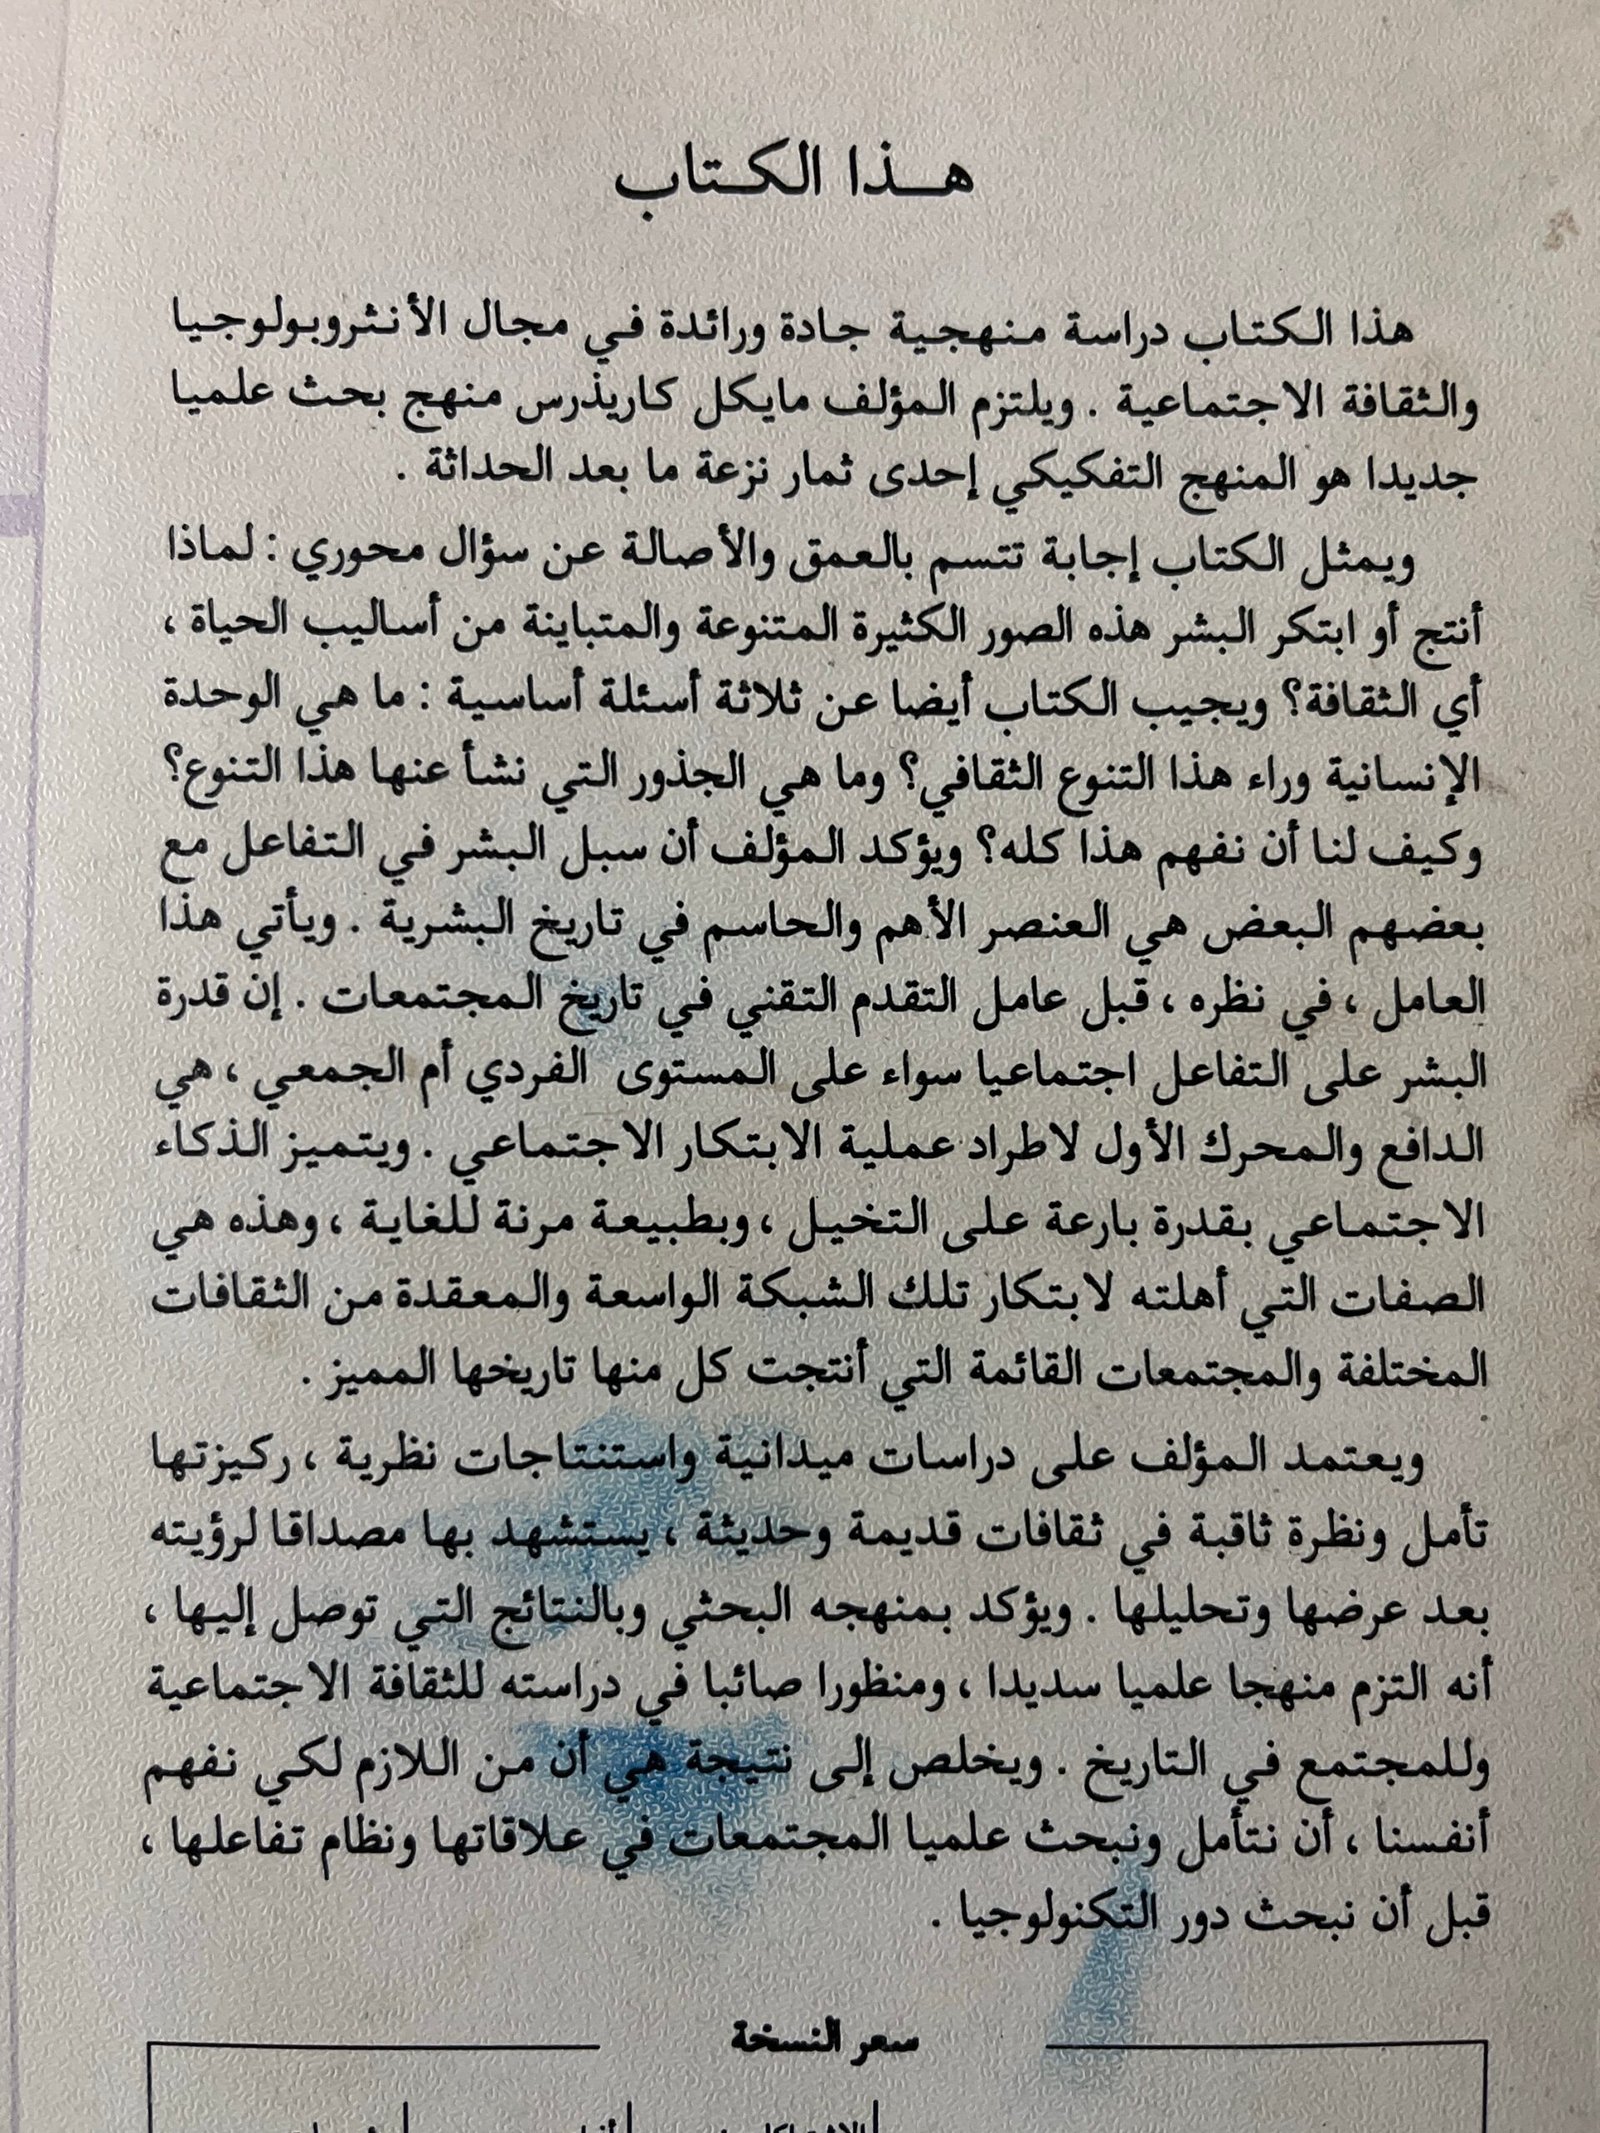 هذا الكتاب
هذا الكتاب دراسة منهجية جادة ورائدة في مجال الأنثروبولوجيا
والثقافة الاجتماعية . ويلتزم المؤلف مايكل كاريذرس منهج بحث علميا
جديدا هو المنهج التفكيكي إحدى ثمار نزعة ما بعد الحداثة .
ويمثل الكتاب إجابة تتسم بالعمق والأصالة عن سؤال محوري : لماذا
أنتج أو ابتكر البشر هذه الصور الكثيرة المتنوعة والمتباينة من أساليب الحياة ،
أي الثقافة؟ ويجيب الكتاب أيضا عن ثلاثة أسئلة أساسية : ما هي الوحدة
الإنسانية وراء هذا التنوع الثقافي؟ وما هي الجذور التي نشأ عنها هذا التنوع؟
وكيف لنا أن نفهم هذا كله؟ ويؤكد المؤلف أن سبل البشر في التفاعل مع
بعضهم البعض هي العنصر الأهم والحاسم في تاريخ البشرية . ويأتي هذا
العامل ، في نظره ، قبل عامل التقدم التقني في تاريخ المجتمعات . إن قدرة
البشر على التفاعل اجتماعيا سواء على المستوى الفردي أم الجمعي ، هي
الدافع والمحرك الأول لاطراد عملية الابتكار الاجتماعي . ويتميز الذكاء
الاجتماعي بقدرة بارعة على التخيل ، وبطبيعة مرنة للغاية ، وهذه هي
الصفات التي أهلته لابتكار تلك الشبكة الواسعة والمعقدة من الثقافات
المختلفة والمجتمعات القائمة التي أنتجت كل منها تاريخها المميز .
ويعتمد المؤلف على دراسات ميدانية واستنتاجات نظرية ، ركيزتها
تأمل ونظرة ثاقبة في ثقافات قديمة وحديثة ، يستشهد بها مصداقا لرؤيته
بعد عرضها وتحليلها . ويؤكد بمنهجه البحثي وبالنتائج التي توصل إليها ،
أنه التزم منهجا علميا سديدا ، ومنظورا صائبا في دراسته للثقافة الاجتماعية
وللمجتمع في التاريخ . ويخلص إلى نتيجة هي أن من اللازم لكي نفهم
أنفسنا ، أن نتأمل ونبحث علميا المجتمعات في علاقاتها ونظام تفاعلها ،
قبل أن نبحث دور التكنولوجيا .
سعر النسخة